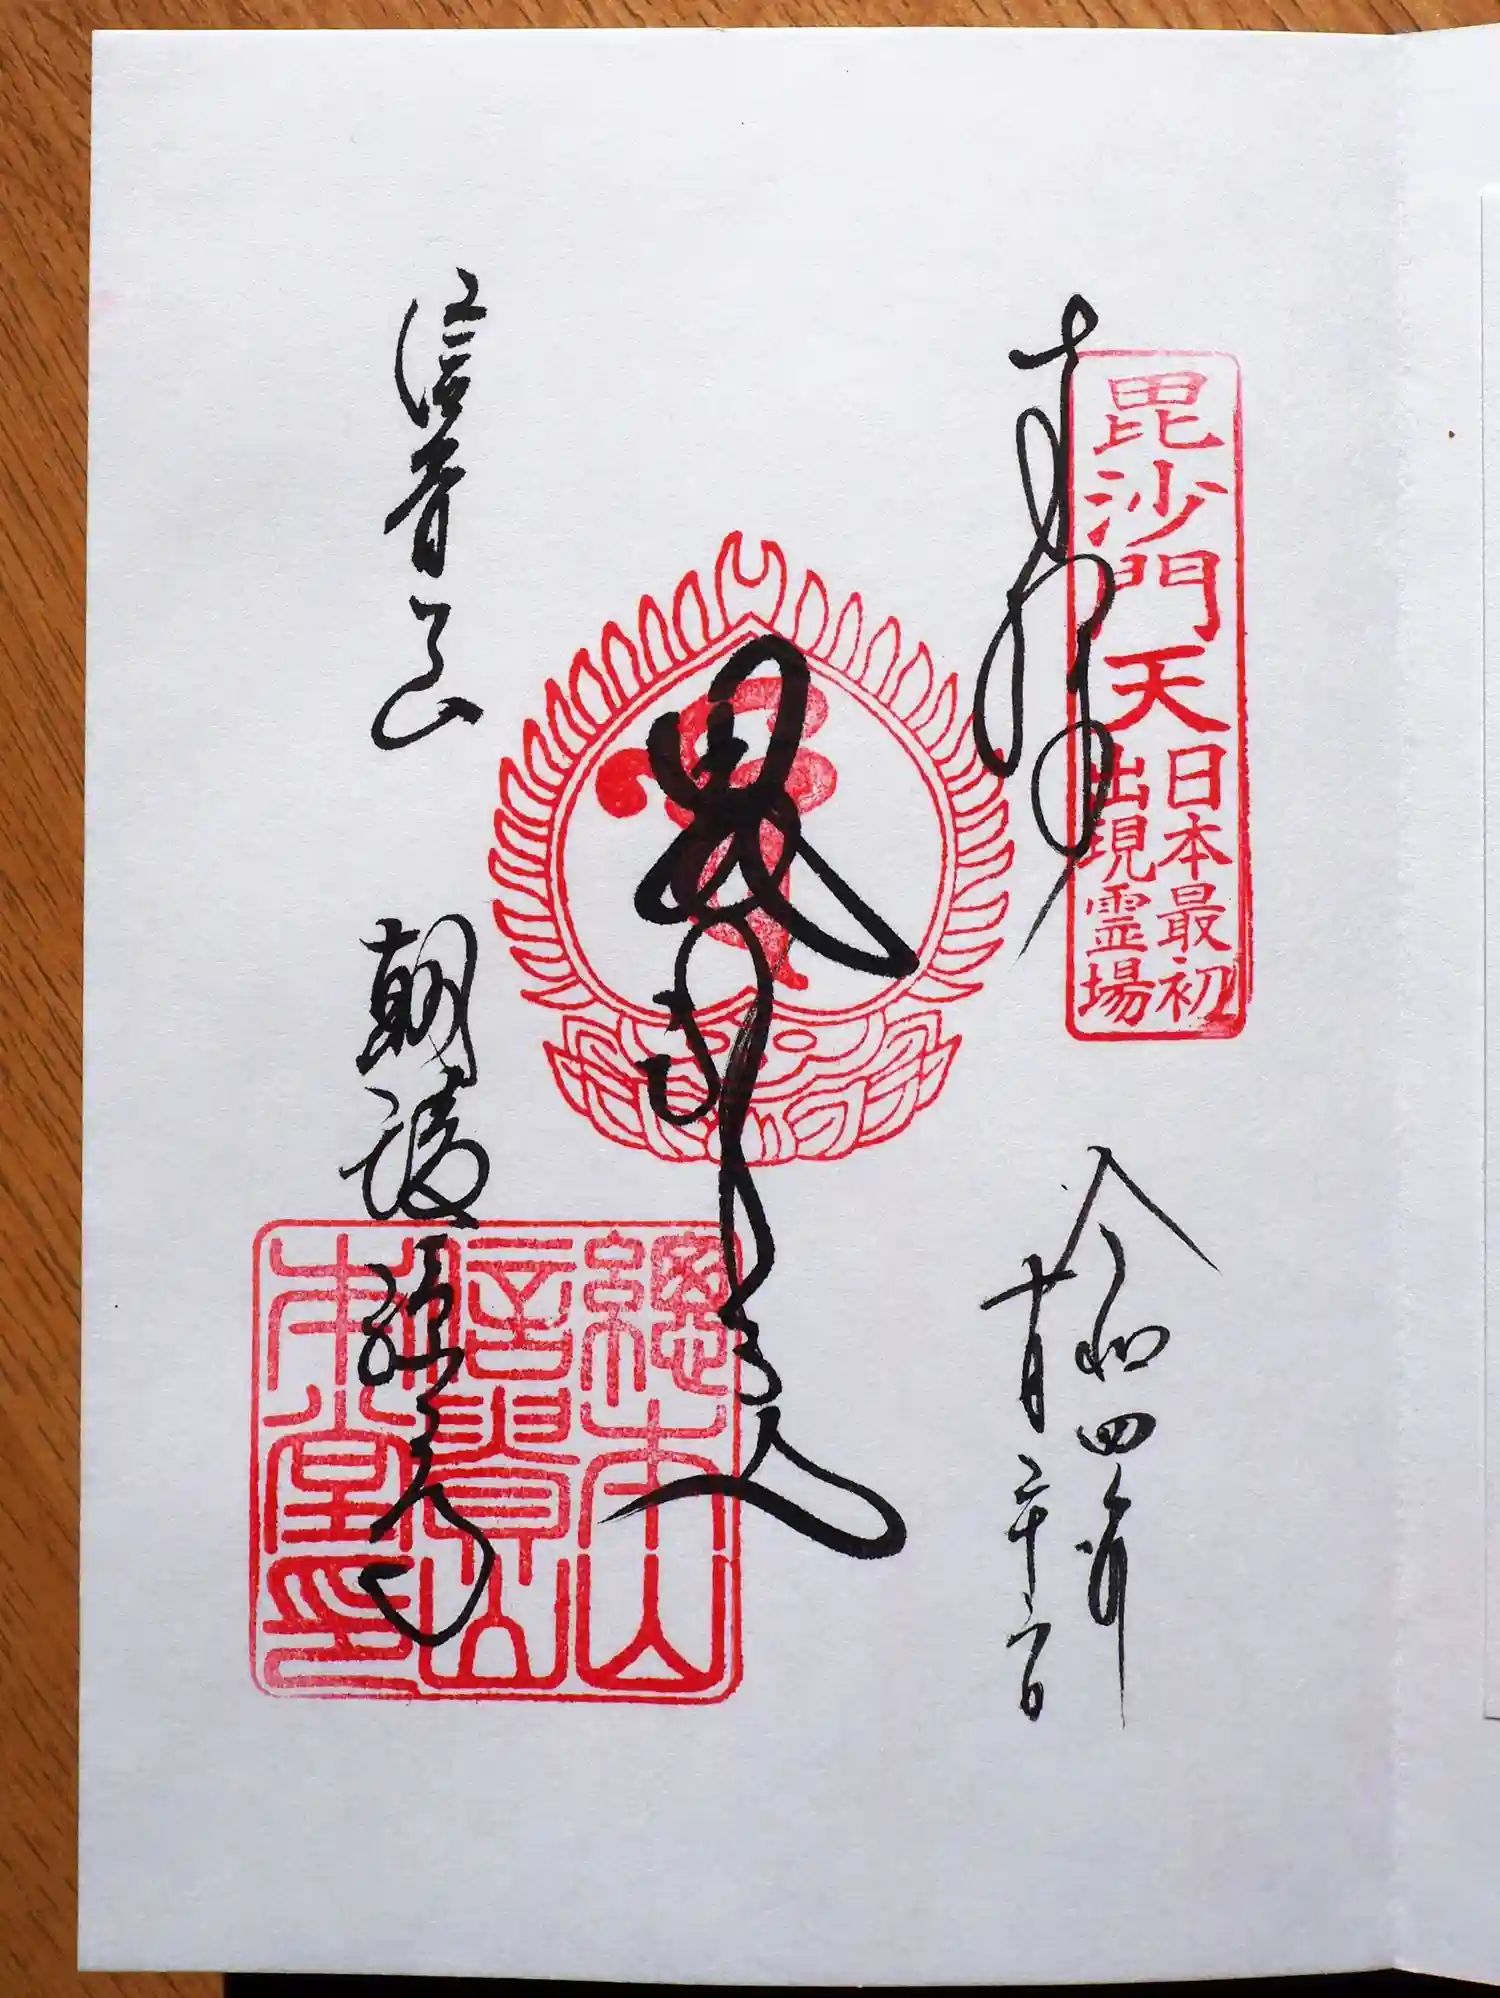 奉拝
毘沙門天
日本最初
出現霊場
令和四年
十月二十六日
毘沙門天
信貴山
朝護孫子寺
總本山
信貴山
本堂印